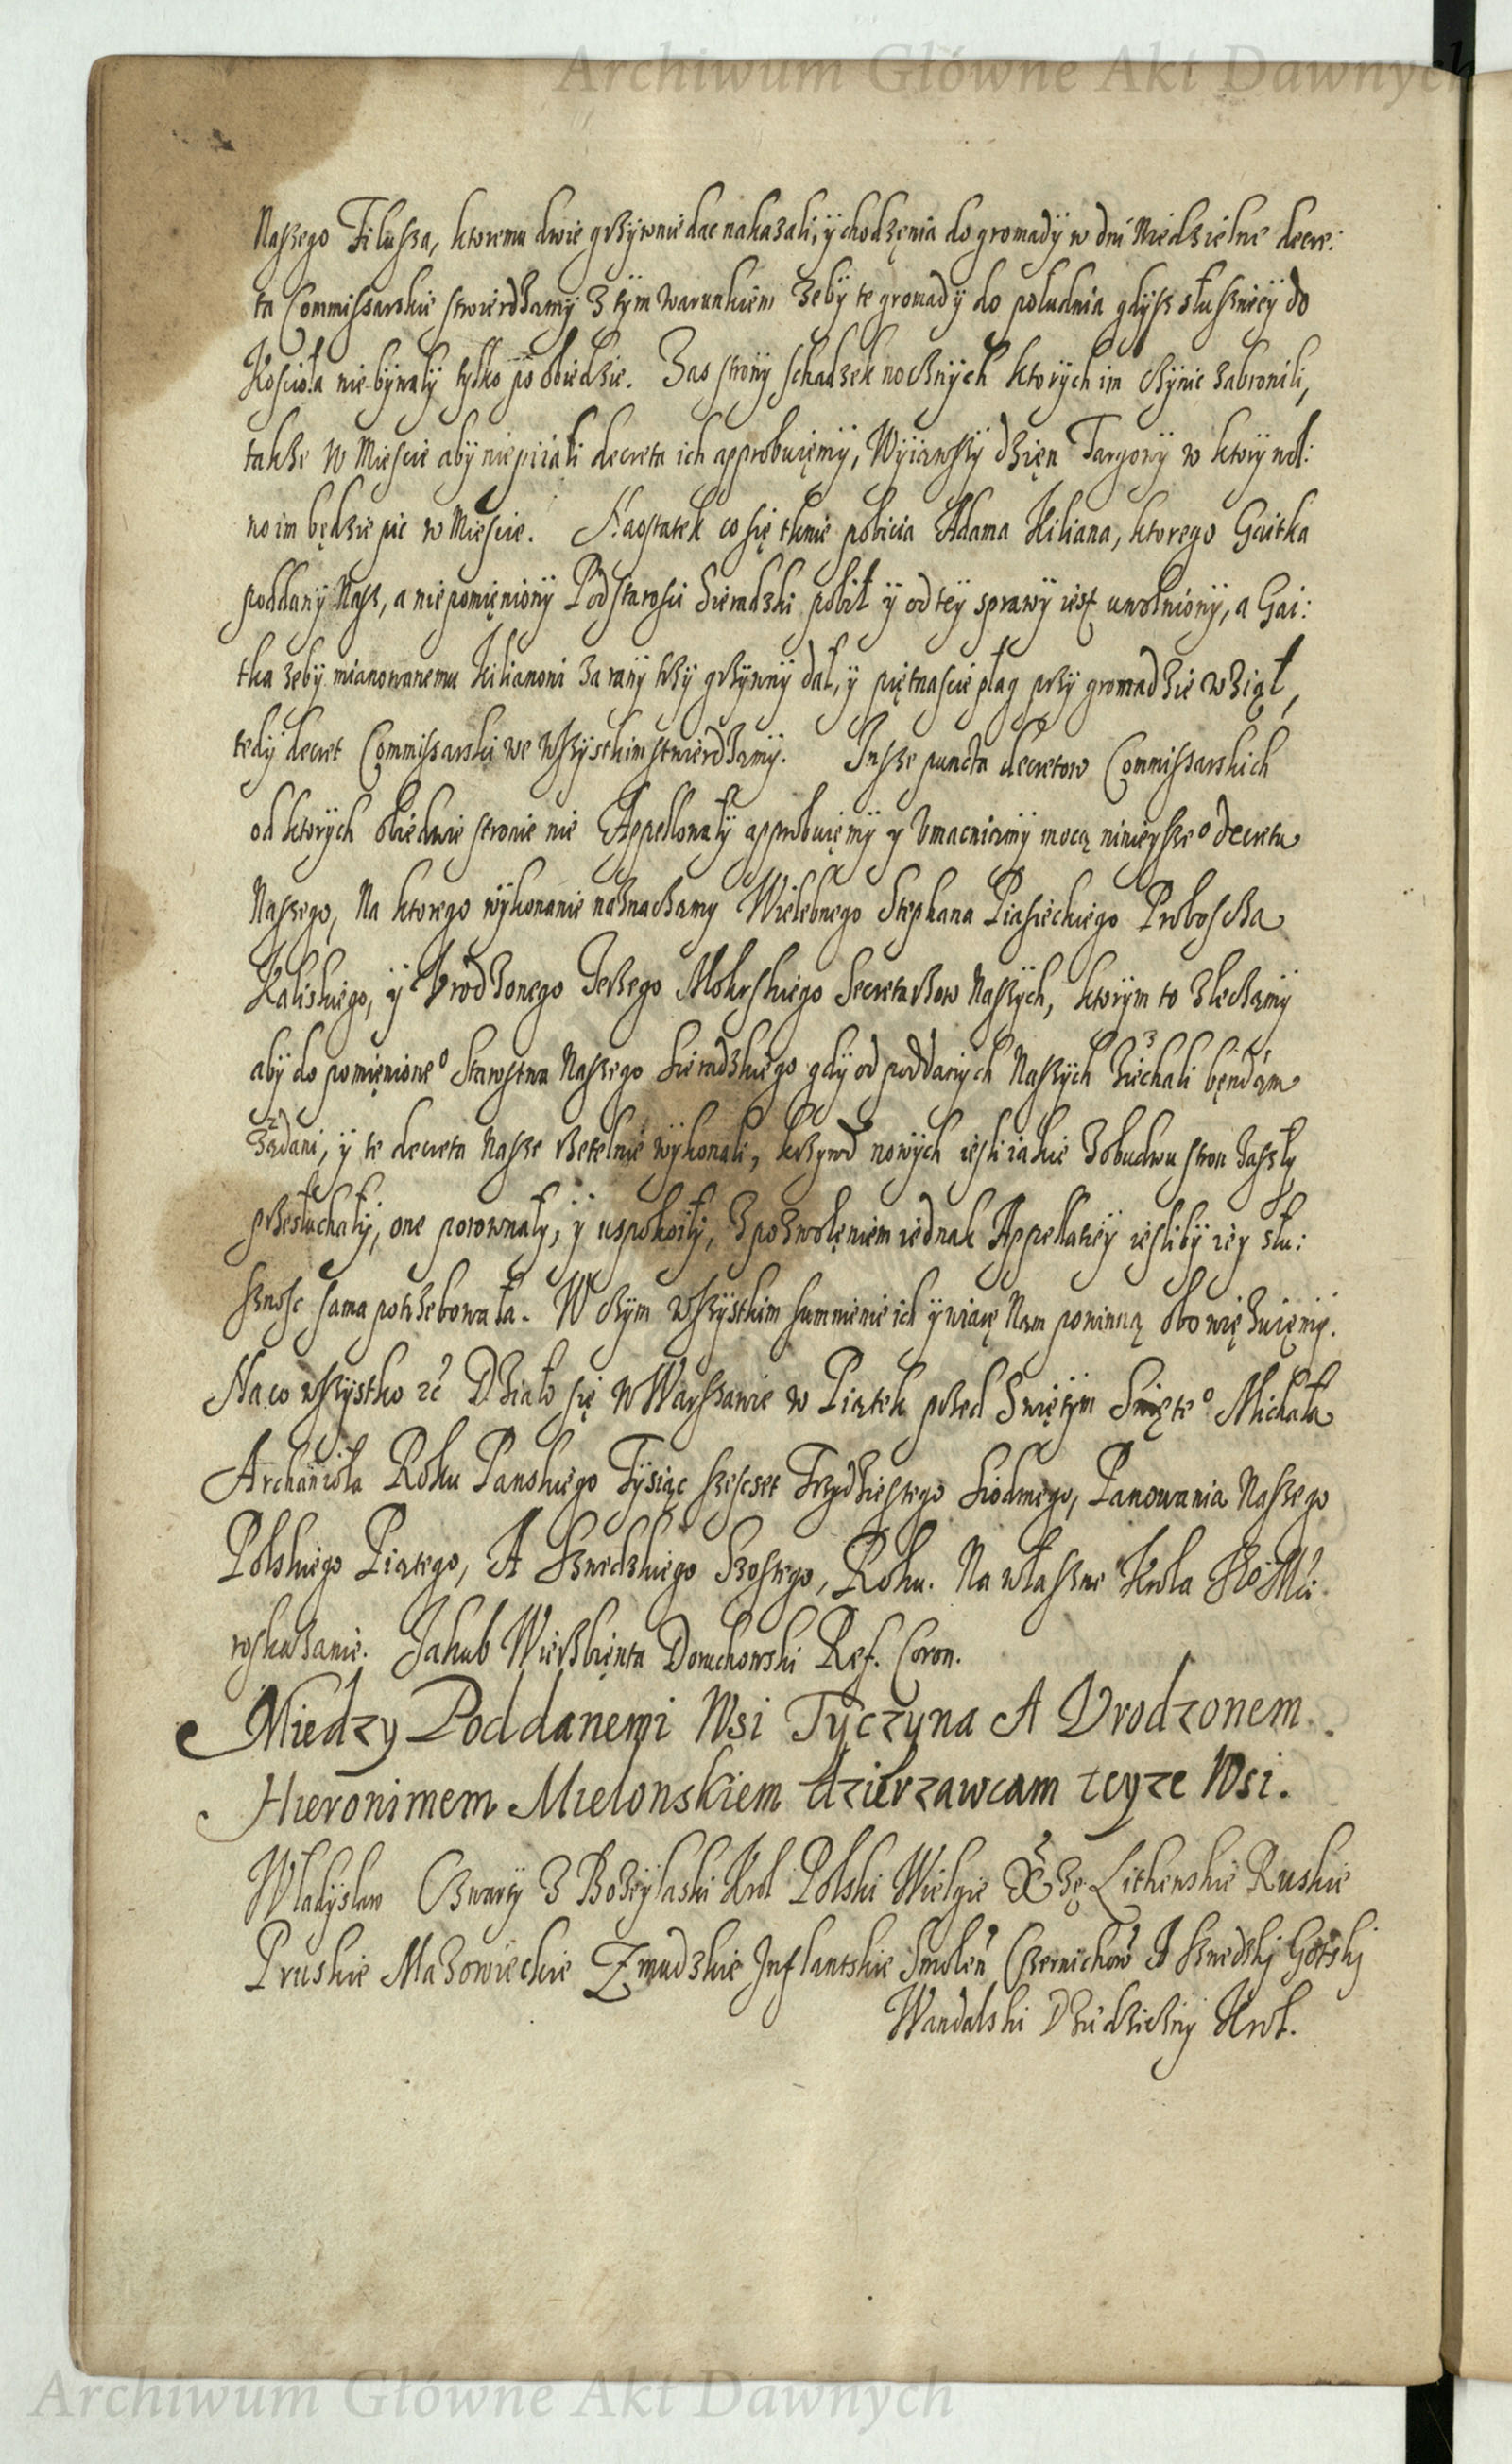 Archiwum Główne Akt Dawnych
Naszego Filusza, ktoremu dwie grzywnie dac nakazali, y chodzenia do gromady w dni Niedzielne decre:
ta Commissarskie stwierdzamy z tym warunkiem zeby te gromady do południa gdysz słuszniey do
Koscioła nie bywały tylko po obiedzie. Zas strony schadzek nocznych ktorych im czynic zabronili,
takze w Miescie aby niepiiali decreta ich approbuięmy, Wyiąwszy dzięn Targowy w ktory wol:
no im będzie pic w Miescie. Naostatek co się tknie pobicia Adama Kiliana, ktorego Gaitka
poddany Nasz, a nie pomięniony Podstarosci Sieradzki pobił y od tey sprawy iest uwolniony, a Gai:
tka zeby mianowanemu Kilianowi za rany trzy grzywny dał, y piętnascie plag przy gromadzie wziął,
tedy decret Commissarski we wszystkim stwierdzamy. Insze puncta decretow Commissarskich
od ktorych obiedwie stronie nie Appellowały approbuięmy y Vmacniamy mocą ninieysze⁰ decretu
Naszego, Na ktorego wykonanie naznaczamy Wielebnego Stephana Piasieckiego Proboscza
Kaliskiego, y Vrodzonego Jerzego Mokrskiego Secretarzow Naszych, ktorym to zlecamy
aby do pomięnione⁰ Starostwa Naszego Sieradzkiego gdy od poddanych Naszych Ziechali będą
Ządani, y te decreta Nasze rzetelnie wykonali, krzywd nowych iesli iakie z obudwu stron zaszły
przesłuchały, one porownały, y uspokoiły, z pozwolęniem iednak Appellatiey iesliby iey słu:
sznosc sama potrzebowała. W czym wszystkim summienie ich y wiarę Nam powinną obowięzuięmy.
Na co wszystko ετc̃ Działo się w Warszawie w Piątek przed Swiętym Swięte⁰ Michała
Archanioła Roku Panskiego Tysiąc szescset Trzydziestego Siodmego, Panowania Naszego
Polskiego Piątego, A Szwedzkiego Szostego, Roku. Na własne Krola Je⁰ Mći
roskazanie. Jakub Wierzbięnta Doruchowski Ref. Coron.
Miedzy Poddanemi Wsi Tyczyna A Vrodzonem
Hieronimem Mielonskiem dzierzawcam teyze Wsi.
Wladyslaw Czwarty z Bozey łaski Krol Polski Wielgie Xżę Lithewskie Ruskie
Pruskie Mazowieckie Zmudzkie Inflantskie Smoleń Czernichow A Szwedzkj Gotskj
Wandalski Dziedziczny Krol.
Archiwum Główne Akt Dawnych